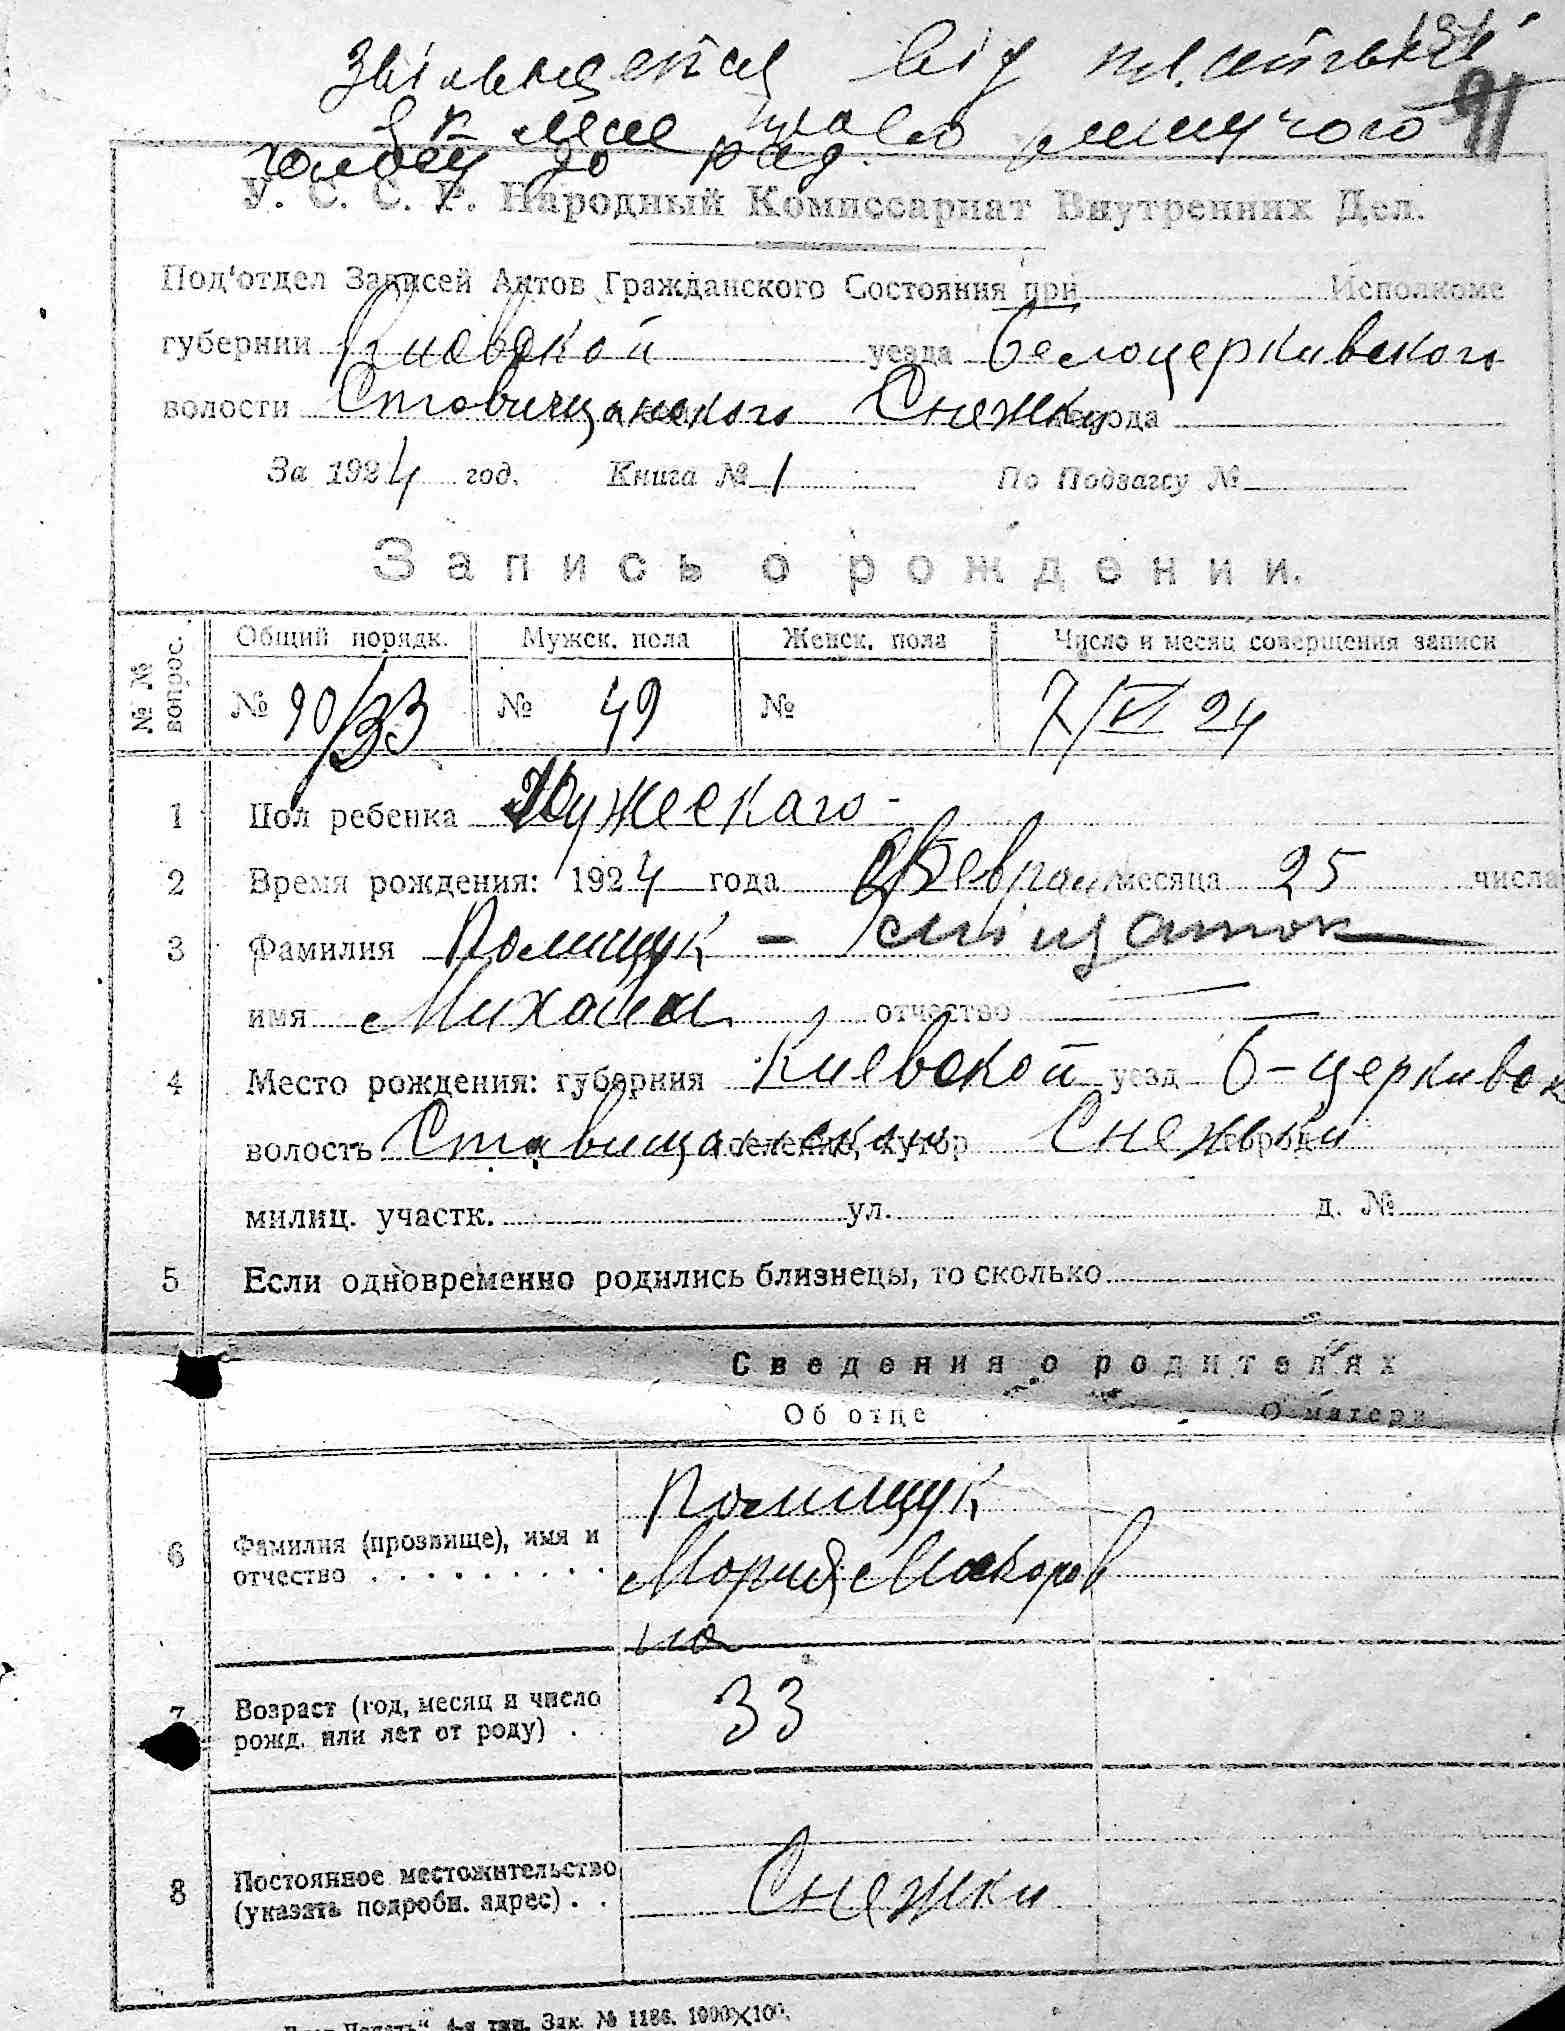 Звільняется від
91
У. С. С. Р. Народный Комиссариат Внутренних Дел.
Под'отдел Записей Актов Гражданского Состояния при Исполкоме
губернии Киевской уезда Белоцеркивского
волости Ставищанского Снежки города
За 1924 год. Книга № 1 По Подзагсу №
Запись о рождении.
№ № вопрос. Общий порядк. Мужск. пола Женск. пола Число и месяц совершения записи
№ 90/33 № 49 № 7/VI 24
1 Пол ребенка Мужескаго
2 Время рождения: 1924 года Феврал месяца 25 числа
3 Фамилия Полищук -
имя Михаил отчество —
4 Место рождения: губерния Киевской уезд Б-церкивск
волость Ставищанский селение, хутор Снежки город
милиц. участк. ул. д. №
5 Если одновременно родились близнецы, то сколько
Сведения о родителях
Об отце О матери
6 Фамилия (прозвище), имя и отчество Полищук
Мария Макаров
на
7 Возраст (год, месяц и число рожд. или лет от роду) 33
8 Постоянное местожительство (указать подробн. адрес) Снежки
Печать" 4-я тип. Зак. № 1186. 1000×100.